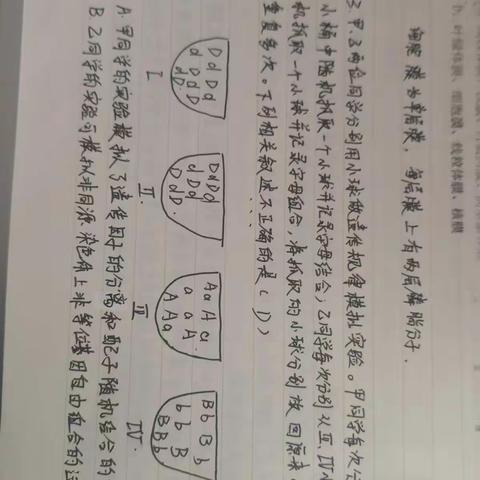 细胞膜为单层膜，每层膜上有两层磷脂分子.
3.甲、乙两位同学分别用小球做遗传规律模拟实验。甲同学每次分
小桶中随机抓取一个小球并记录字母结合；乙同学每次分别从Ⅲ、Ⅳ小
机抓取一个小球并记录字母组合，将抓取的小球分别放回原来
重复多次。下列相关叙述不正确的是（D）
D d D d
d D D
d D
Ⅰ
D d D d
d D d
D d D.
Ⅱ.
A a A a
a a A
A A a
Ⅲ
B b B b
b b B
B B b
Ⅳ.
A.甲同学的实验模拟了遗传因子的分离和配子随机结合的
B.乙同学的实验可模拟非同源染色体上非等位基因自由组合的过